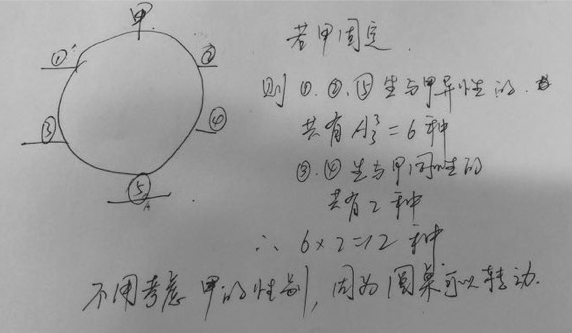 甲
①
②
③
④
⑤
若甲固定.
则①.②.⑤坐与甲异性的.
共有A³₃=6种
③.④坐与甲同性的
共有2种
∴ 6×2=12 种
不用考虑 甲的性别, 因为圆桌可以转动.